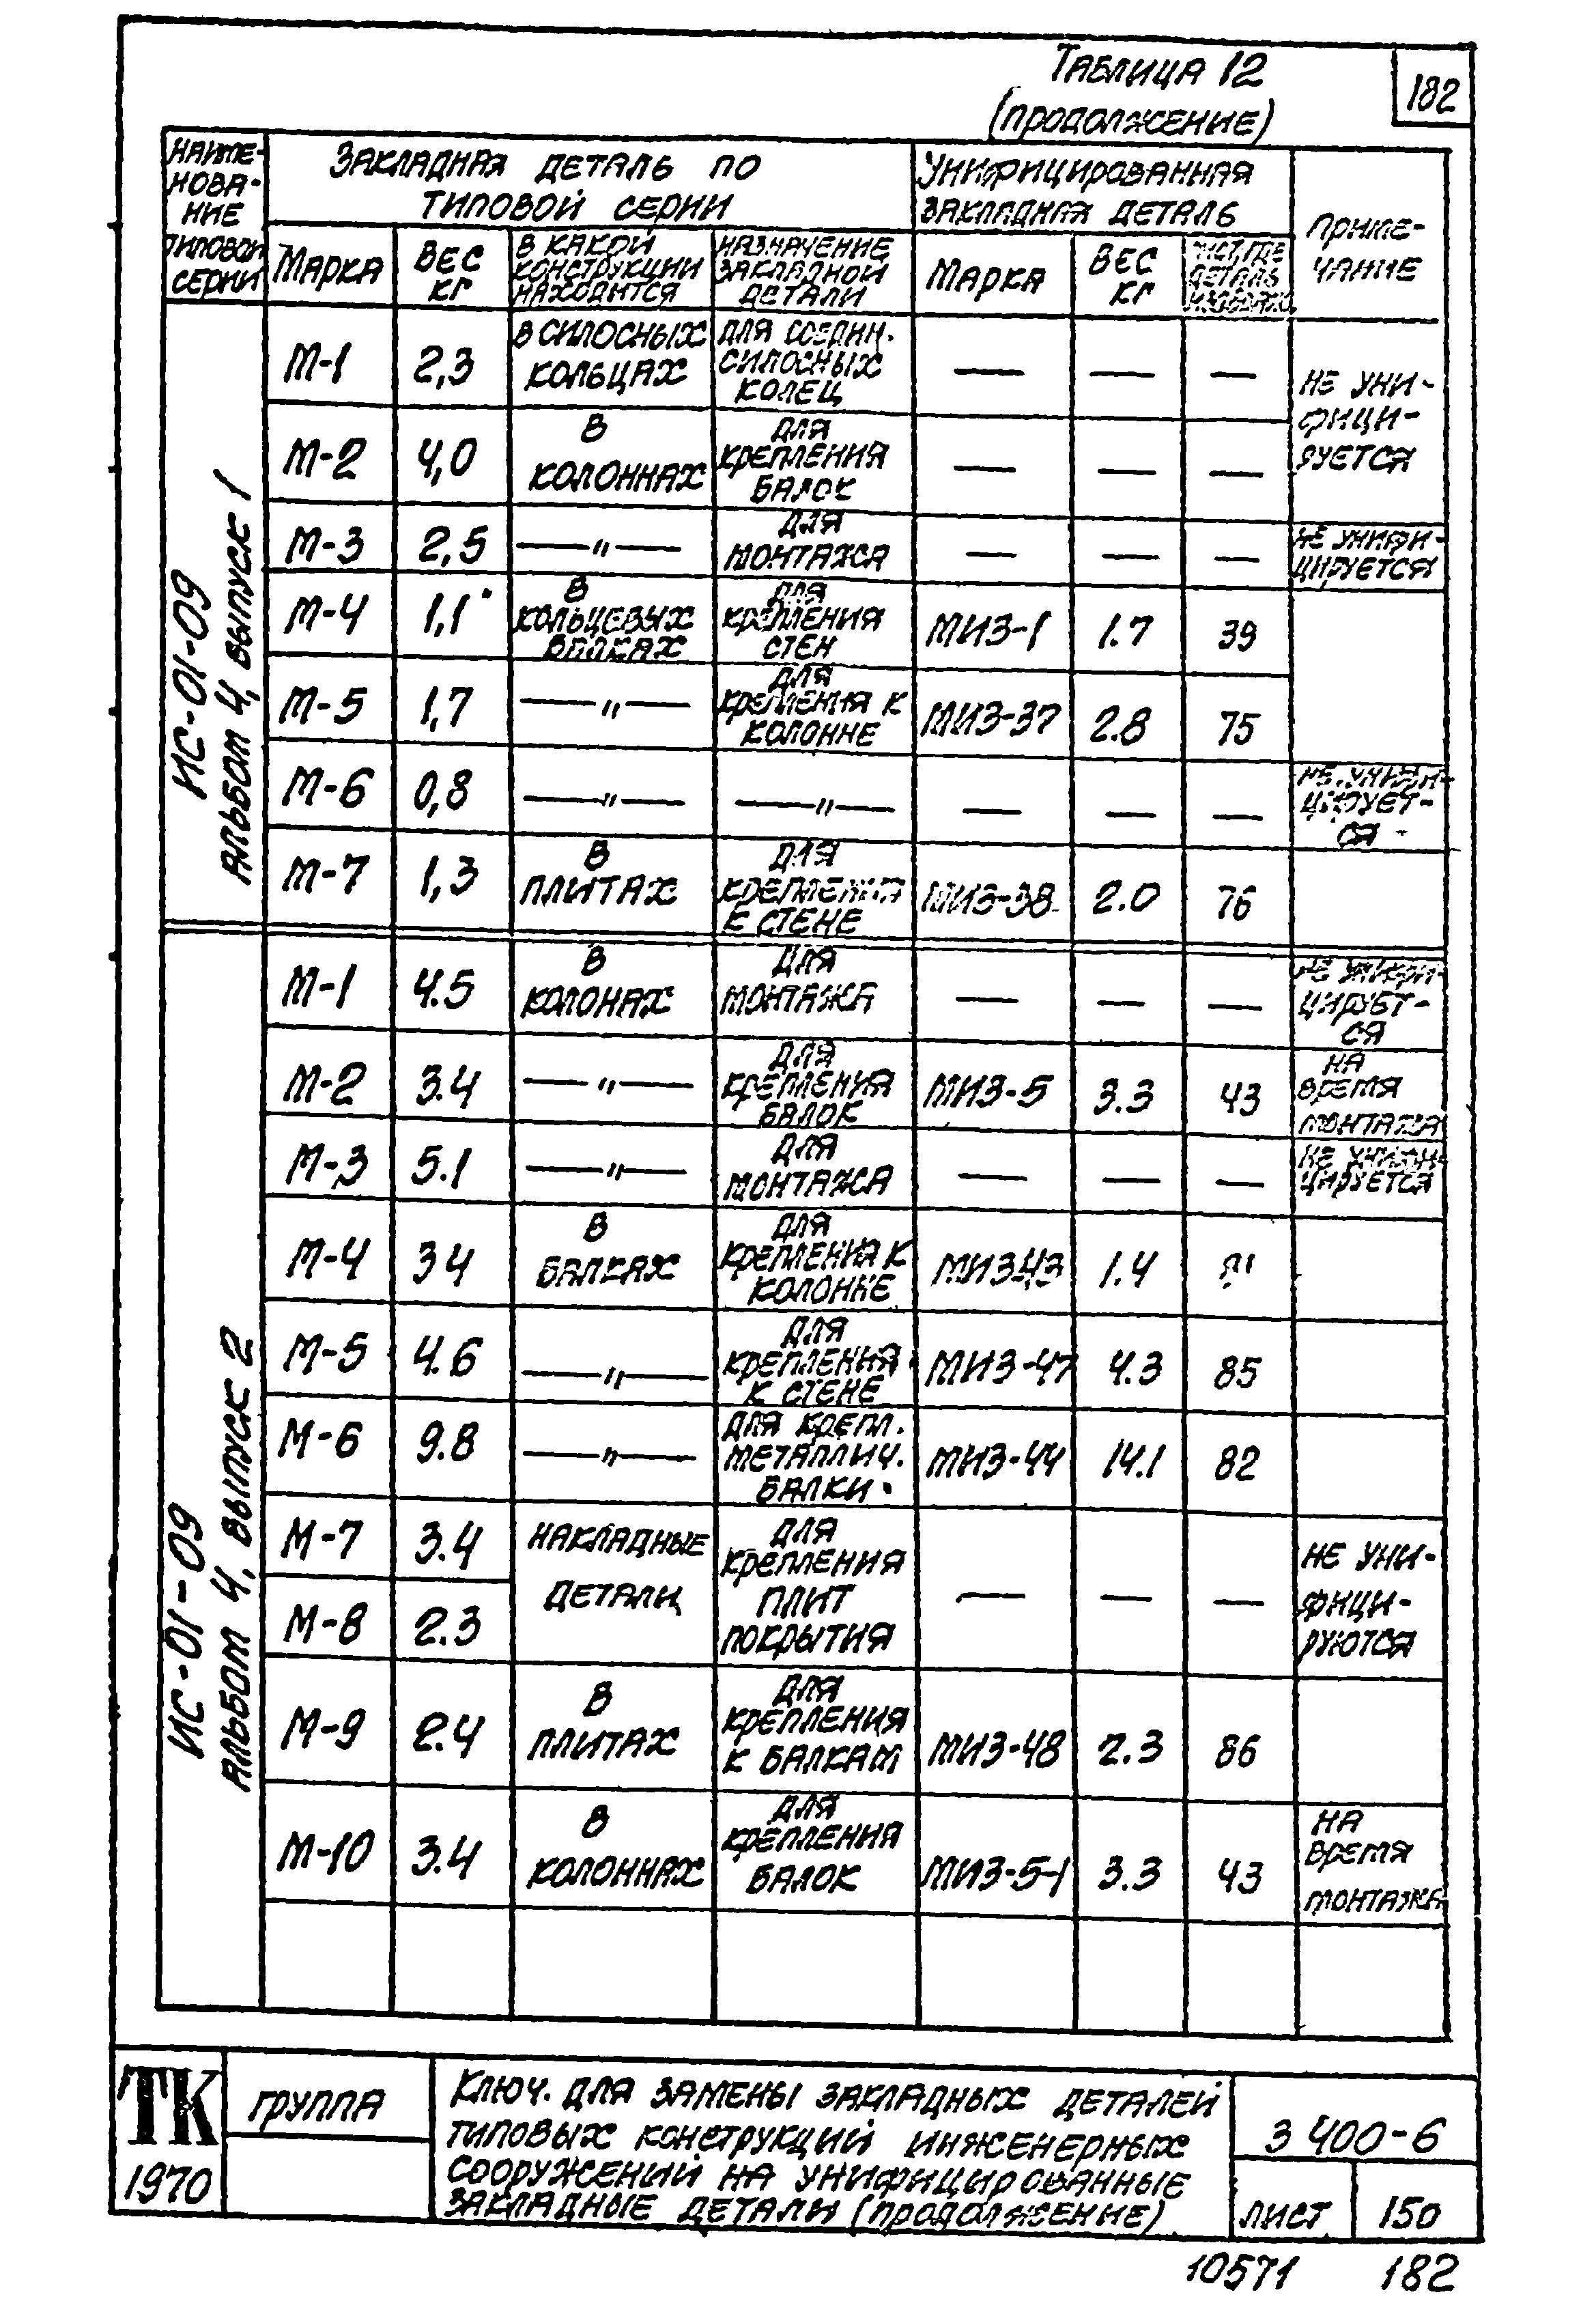 ТАБЛИЦА 12
(ПРОДОЛЖЕНИЕ)
182
НАИМЕ-
НОВА-
НИЕ
ТИПОВОЙ
СЕРИИ
ЗАКЛАДНАЯ ДЕТАЛЬ ПО
ТИПОВОЙ СЕРИИ
УНИФИЦИРОВАННАЯ
ЗАКЛАДНАЯ ДЕТАЛЬ
ПРИМЕ-
ЧАНИЕ
МАРКА
ВЕС
КГ
В КАКОЙ
КОНСТРУКЦИИ
НАХОДИТСЯ
НАЗНАЧЕНИЕ
ЗАКЛАДНОЙ
ДЕТАЛИ
МАРКА
ВЕС
КГ
ЛИСТ, ГДЕ
ДЕТАЛЬ
ИС-01-09
АЛЬБОМ 4, ВЫПУСК 1
М-1
2,3
В СИЛОСНЫХ
КОЛЬЦАХ
ДЛЯ СОЕДИН.
СИЛОСНЫХ
КОЛЕЦ
— — —
НЕ УНИ-
ФИЦИ-
РУЕТСЯ
М-2
4,0
В
КОЛОННАХ
ДЛЯ
КРЕПЛЕНИЯ
БАЛОК
— — —
М-3
2,5
—"—
ДЛЯ
МОНТАЖА
— — —
НЕ УНИФИ-
ЦИРУЕТСЯ
М-4
1,1
В
КОЛЬЦЕВЫХ
БАЛКАХ
ДЛЯ
КРЕПЛЕНИЯ
СТЕН
МИЗ-1
1.7
39
М-5
1,7
—"—
ДЛЯ
КРЕПЛЕНИЯ К
КОЛОННЕ
МИЗ-37
2.8
75
М-6
0,8
—"—
—"—
— — —
НЕ УНИФИ-
ЦИРУЕТ-
СЯ
М-7
1,3
В
ПЛИТАХ
ДЛЯ
КРЕПЛЕНИЯ
К СТЕНЕ
МИЗ-38
2.0
76
ИС-01-09
АЛЬБОМ 4, ВЫПУСК 2
М-1
4.5
В
КОЛОНАХ
ДЛЯ
МОНТАЖА
— — —
НЕ УНИФИ-
ЦИРУЕТ-
СЯ
М-2
3.4
—"—
ДЛЯ
КРЕПЛЕНИЯ
БАЛОК
МИЗ-5
3.3
43
НА
ВРЕМЯ
МОНТАЖА
М-3
5.1
—"—
ДЛЯ
МОНТАЖА
— — —
НЕ УНИФИ-
ЦИРУЕТСЯ
М-4
34
В
БАЛКАХ
ДЛЯ
КРЕПЛЕНИЯ К
КОЛОННЕ
МИЗ-43
1.4
М-5
4.6
—"—
ДЛЯ
КРЕПЛЕНИЯ
К СТЕНЕ
МИЗ-47
4.3
85
М-6
9.8
—"—
ДЛЯ КРЕПЛ.
МЕТАЛЛИЧ.
БАЛКИ.
МИЗ-44
14.1
82
М-7
3.4
НАКЛАДНЫЕ
ДЕТАЛИ
ДЛЯ
КРЕПЛЕНИЯ
ПЛИТ
ПОКРЫТИЯ
— — —
НЕ УНИ-
ФИЦИ-
РУЮТСЯ
М-8
2.3
М-9
2.4
В
ПЛИТАХ
ДЛЯ
КРЕПЛЕНИЯ
К БАЛКАМ
МИЗ-48
2.3
86
М-10
3.4
В
КОЛОННАХ
ДЛЯ
КРЕПЛЕНИЯ
БАЛОК
МИЗ-5-1
3.3
43
НА
ВРЕМЯ
МОНТАЖА
ТК
1970
ГРУППА
КЛЮЧ. ДЛЯ ЗАМЕНЫ ЗАКЛАДНЫХ ДЕТАЛЕЙ
ТИПОВЫХ КОНСТРУКЦИЙ ИНЖЕНЕРНЫХ
СООРУЖЕНИЙ НА УНИФИЦИРОВАННЫЕ
ЗАКЛАДНЫЕ ДЕТАЛИ (ПРОДОЛЖЕНИЕ)
3 400-6
ЛИСТ
150
10571
182